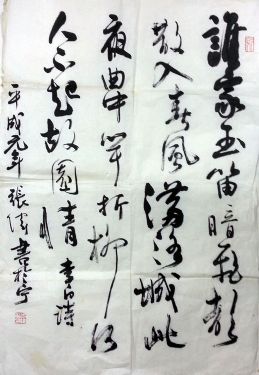 誰家玉笛暗飛聲
散入春風滿洛城此
夜曲中聞折柳何
人不起故園情 李白詩
平成元年 張 書於